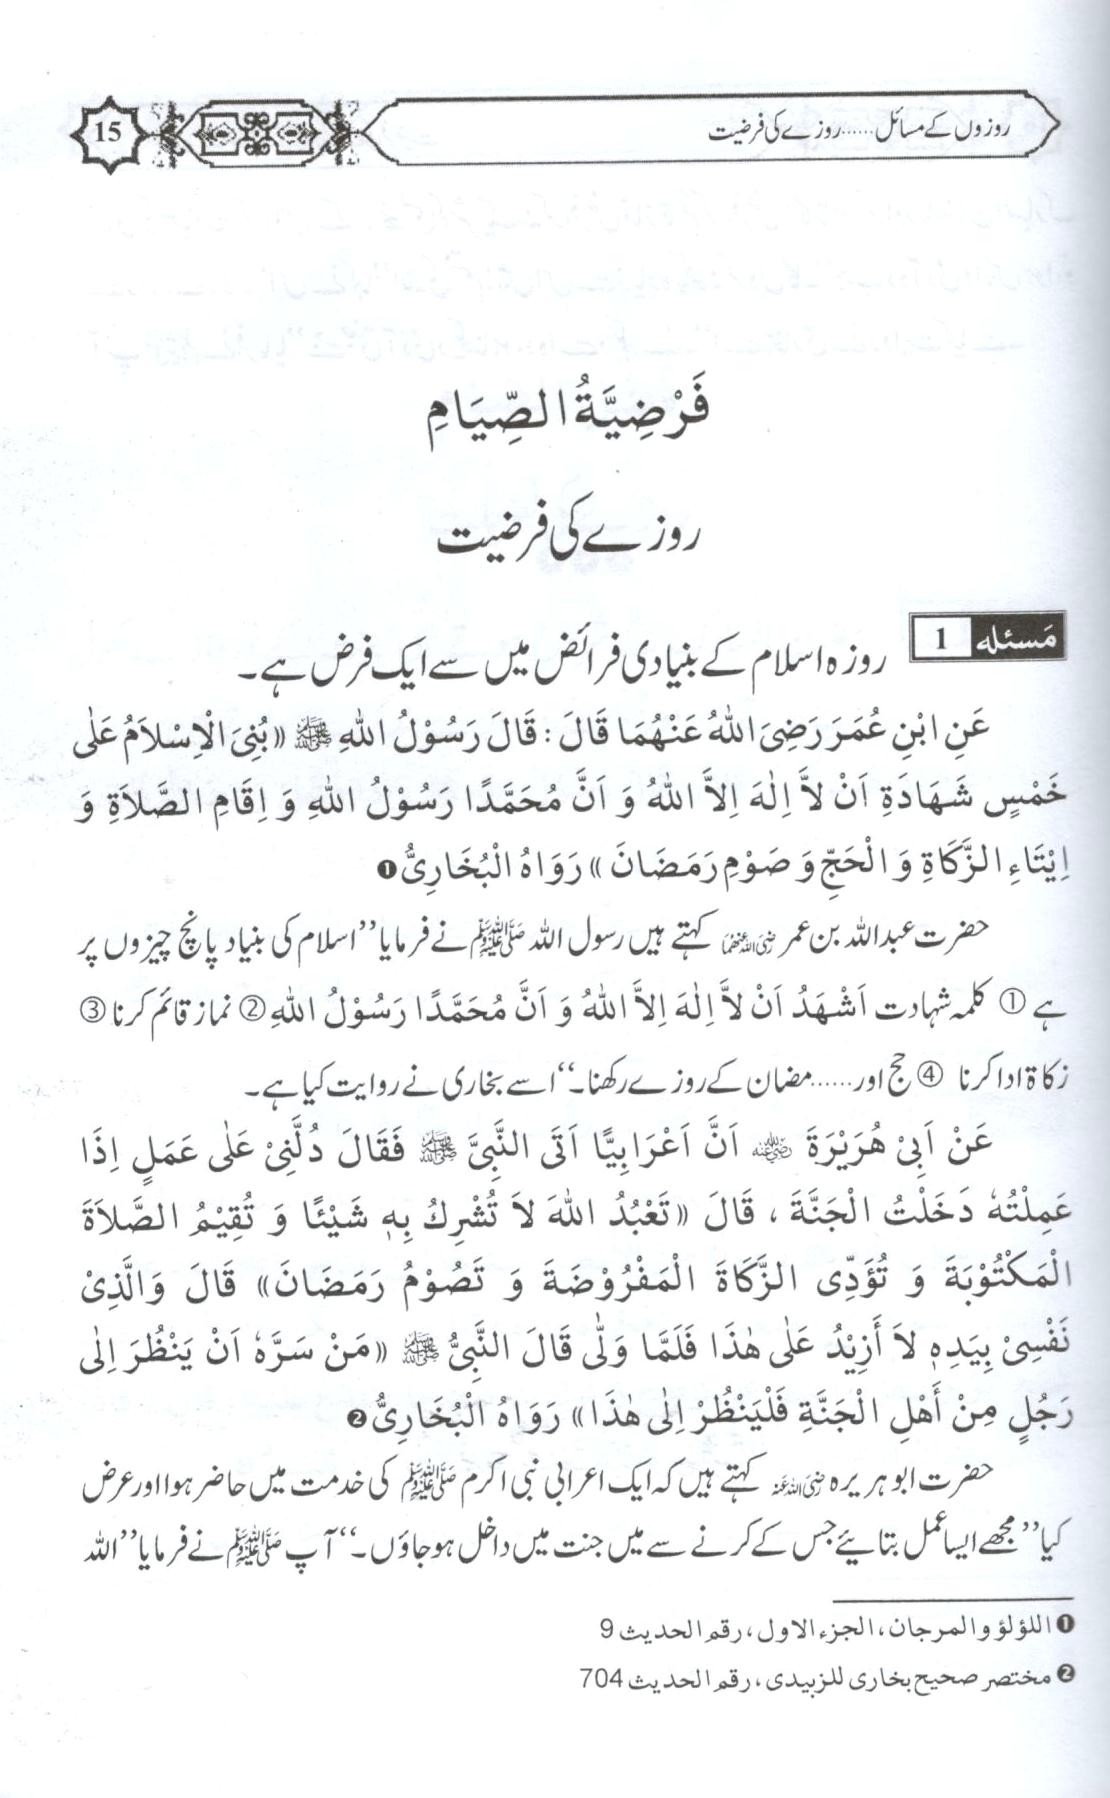 روزوں کے مسائل ...... روزے کی فرضیت 15
فَرْضِيَّةُ الصِّيَامِ
روزے کی فرضیت
مَسئلہ 1 روزہ اسلام کے بنیادی فرائض میں سے ایک فرض ہے۔
عَنِ ابْنِ عُمَرَ رَضِیَ اللّٰہُ عَنْهُمَا قَالَ : قَالَ رَسُوْلُ اللّٰہِ ﷺ ((بُنِیَ الْاِسْلاَمُ عَلٰی
خَمْسٍ شَهَادَةِ اَنْ لاَّ اِلٰهَ اِلاَّ اللّٰہُ وَ اَنَّ مُحَمَّدًا رَسُوْلُ اللّٰہِ وَ اِقَامِ الصَّلاَةِ وَ
اِيْتَاءِ الزَّكَاةِ وَ الْحَجِّ وَ صَوْمِ رَمَضَانَ)) رَوَاهُ الْبُخَارِیُّ ❶
حضرت عبداللہ بن عمر رضی اللہ عنہما کہتے ہیں رسول اللہ ﷺ نے فرمایا ’’اسلام کی بنیاد پانچ چیزوں پر
ہے ① کلمہ شہادت اَشْهَدُ اَنْ لاَّ اِلٰهَ اِلاَّ اللّٰہُ وَ اَنَّ مُحَمَّدًا رَسُوْلُ اللّٰہِ ② نماز قائم کرنا ③
زکاۃ ادا کرنا ④ حج اور ...... مضان کے روزے رکھنا۔‘‘ اسے بخاری نے روایت کیا ہے۔
عَنْ اَبِیْ هُرَيْرَةَ رضی اللہ عنہ اَنَّ اَعْرَابِيًّا اَتَی النَّبِیَّ ﷺ فَقَالَ دُلَّنِیْ عَلٰی عَمَلٍ اِذَا
عَمِلْتُهٗ دَخَلْتُ الْجَنَّةَ ، قَالَ ((تَعْبُدُ اللّٰہَ لاَ تُشْرِكُ بِهٖ شَيْئًا وَ تُقِيْمُ الصَّلاَةَ
الْمَكْتُوْبَةَ وَ تُؤَدِّی الزَّكَاةَ الْمَفْرُوْضَةَ وَ تَصُوْمُ رَمَضَانَ)) قَالَ وَالَّذِیْ
نَفْسِیْ بِيَدِهٖ لاَ أَزِيْدُ عَلٰی هٰذَا فَلَمَّا وَلّٰی قَالَ النَّبِیُّ ﷺ ((مَنْ سَرَّهٗ اَنْ يَنْظُرَ اِلٰی
رَجُلٍ مِنْ أَهْلِ الْجَنَّةِ فَلْيَنْظُرْ اِلٰی هٰذَا)) رَوَاهُ الْبُخَارِیُّ ❷
حضرت ابو ہریرہ رضی اللہ عنہ کہتے ہیں کہ ایک اعرابی نبی اکرم ﷺ کی خدمت میں حاضر ہوا اور عرض
کیا ’’مجھے ایسا عمل بتائیے جس کے کرنے سے میں جنت میں داخل ہو جاؤں۔‘‘ آپ ﷺ نے فرمایا ’’اللہ
❶ اللؤلؤ والمرجان، الجزء الاول، رقم الحدیث 9
❷ مختصر صحیح بخاری للزبیدی، رقم الحدیث 704